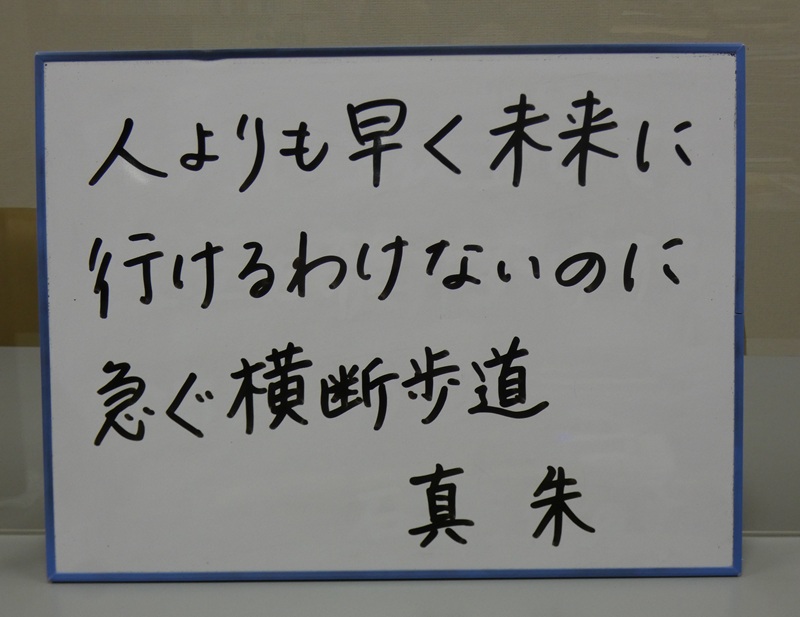 人よりも早く未来に
行けるわけないのに
急ぐ横断歩道
真 朱